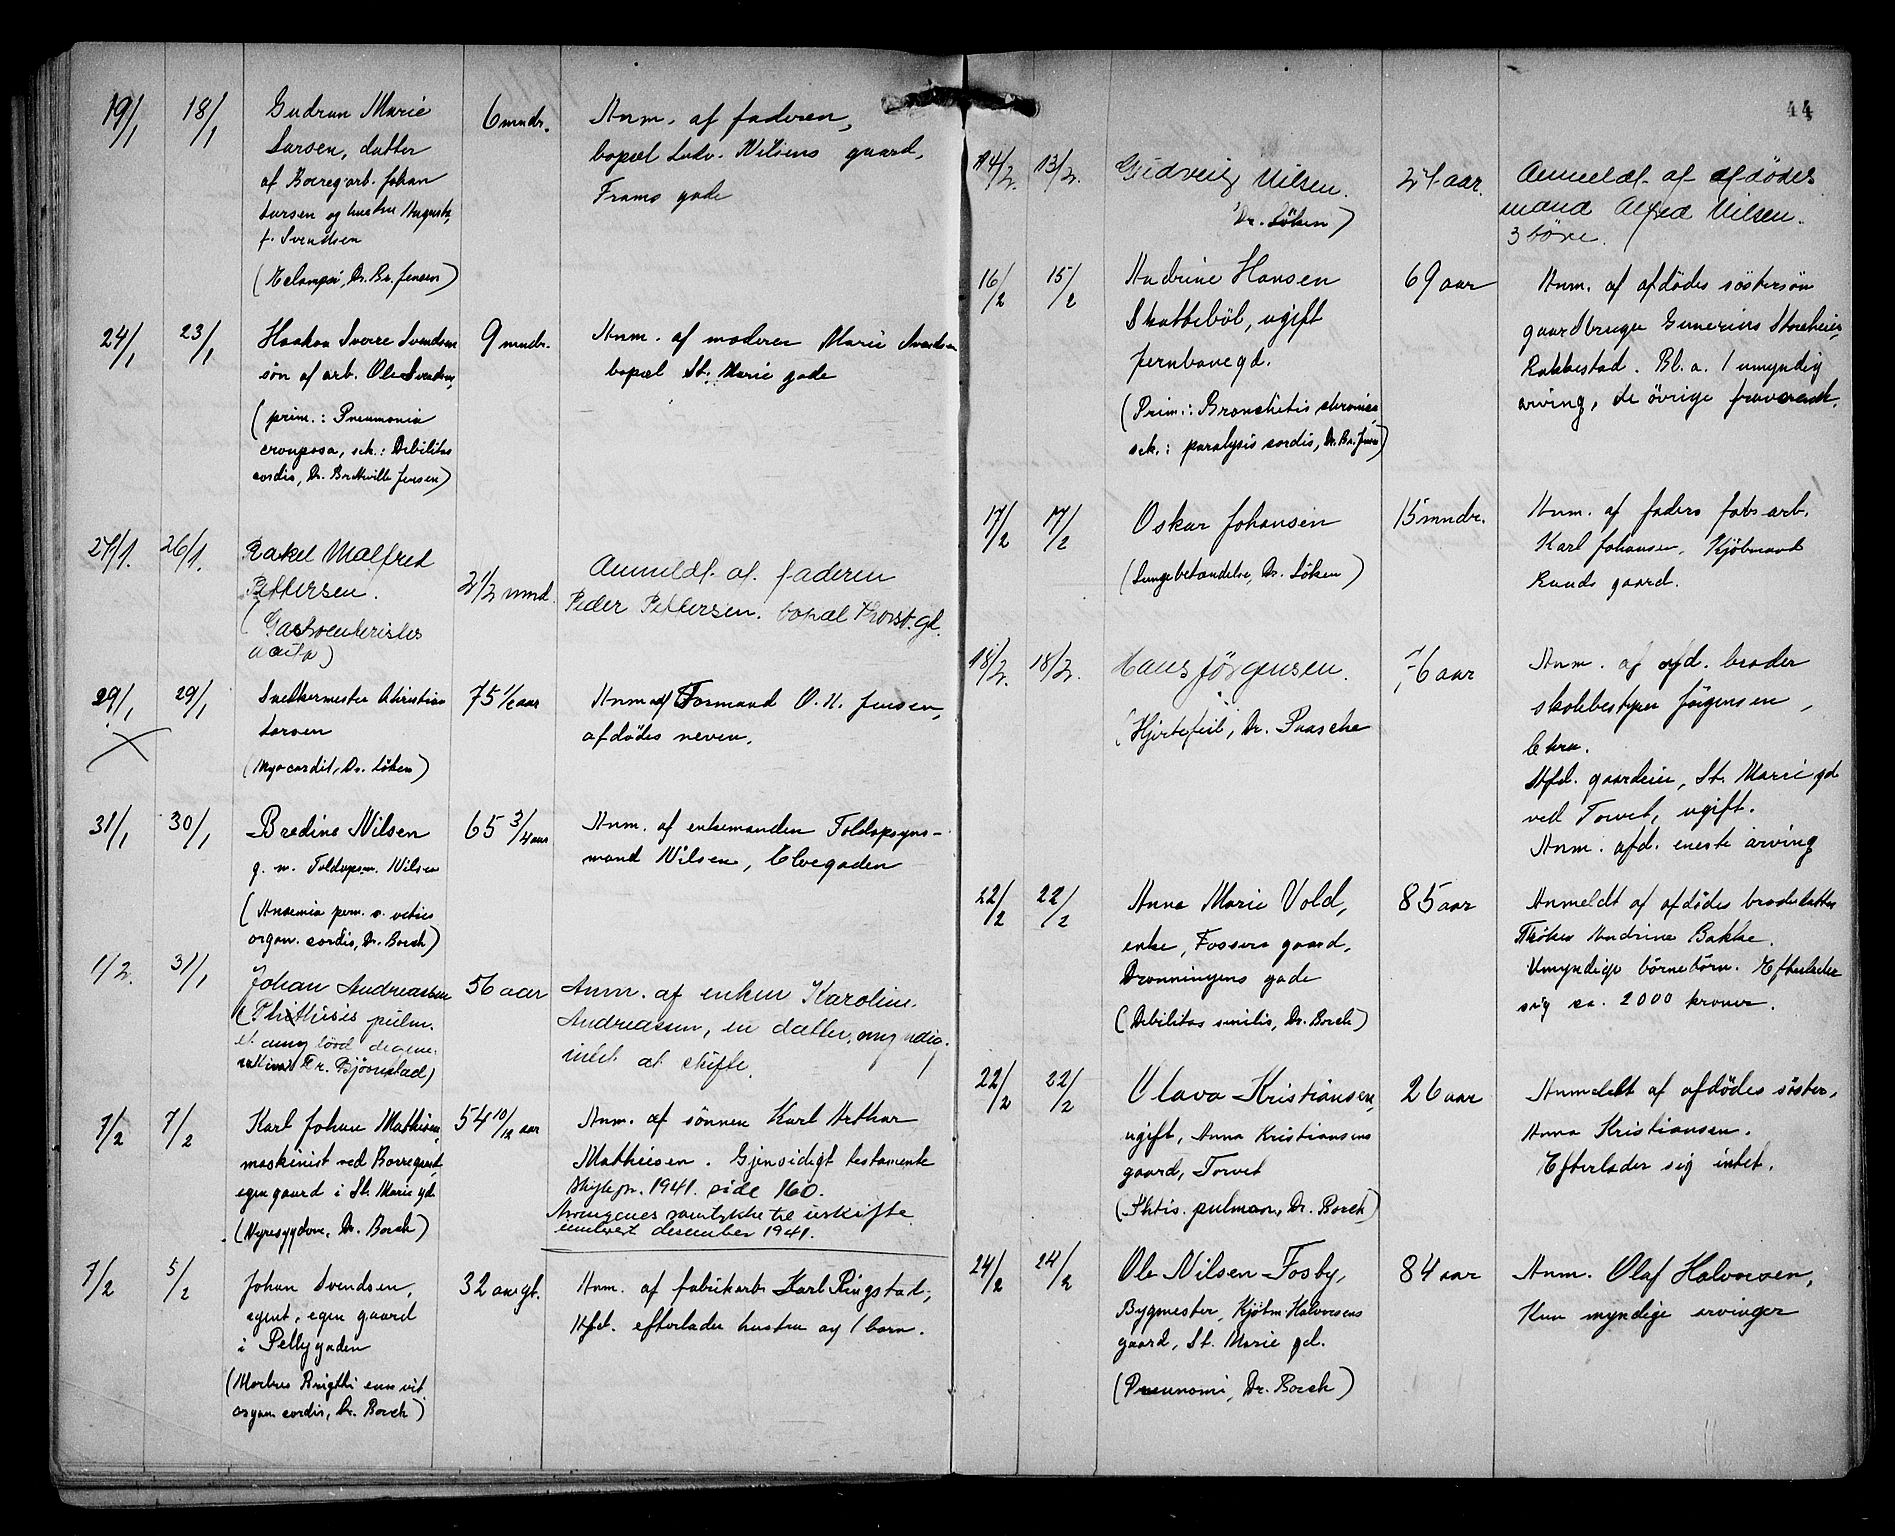 19/1 18/1 Gudrun Marie 6 mndr. Anm. af faderen,
Larsen, datter bopæl Ludv. Nilsens gaard,
af Borreg.arb. Johan Frams gade
Larsen og hustru Augusta,
f. Svendsen
(Eclampsi, Dr. Br. Jensen)
24/1 23/1 Haakon Sverre Svendsen 9 mndr. Anm. af moderen Marie Svendsen
søn af arb. Ole Svendsen, bopæl St. Marie gade
(prim.: Pneumonia
crouposa, sek.: Debilitas
cordis, Dr. Bretteville Jensen)
27/1. 26/1. Rakel Malfred
Pettersen. 2 1/2 mnd. Anmeldt af faderen
(Gastroenterisles Peder Pettersen. bopæl Torvst. gd.
acuta)
29/1 29/1 Snedkermester Christian 75 1/2 aar Anm. af Formand O. H. Jensen,
Larsen afdødes neven.
(Myocardit, Dr. Löken)
31/1 30/1 Bredine Nilsen 65 3/4 aar Anm. af enkemanden Toldopsyns-
g. m. Toldopsm. Nilsen mand Nilsen, Elvegaden
(Anæmia pern. o. vities
organ. cordis, Dr. Borch)
1/2. 31/1 Johan Andreassen 56 aar Anm. af enken Karoline
(Phthisis pulm. Andreassen, en datter, myndig.
et amyloid degene- intet at skifte.
Dr. Bjørnstad)
7/2 7/2 Karl Johan Mathisen, 54 10/12 aar Anm. af sønnen Karl Arthur
maskinist ved Borregaard, Mathiesen. Gjensidigt testamente
egen gaard i St. Marie gd. Skiftepr. 1941. side 160.
(Nyresygdom, Dr. Borch) Arvingenes samtykke til uskifte
innlevert desember 1941.
7/2 5/2 Johan Svendsen, 32 aar gl. Anm. af fabrikarb. Karl Ringstad,
agent, egen gaard Afd. efterlader hustru og 1 barn.
i Pellygaden
(Morbus Brigthi cum vit.
organ cordis, Dr. Borch)
44
14/2. 13/2. Gudveig Nilsen. 27 aar. Anmeldt af afdødes
Dr. Löken) mand Alfred Nilsen.
3 børn.
16/2 15/2 Andrine Hansen 69 aar Anm. af afdødes søstersøn
Skattebøl, ugift gaardbruger Gunerius Storeheier,
Jernbanegd. Rakkestad. Bl. a. 1 umyndig
(Prim.: Bronchitis chronica arving, de øvrige fraværende.
sek.: paralysis cordis, Dr. Br. Jensen)
17/2 17/2 Oskar Johansen 15 mndr. Anm. af faders fabr.arb.
(Lungebetændelse, Dr. Löken) Karl Johansen, Kjøbmand
Ruuds gaard.
18/2. 18/2. Hans Jørgensen. 76 aar Anm. af afd. broder
(Hjertefeil, Dr. Paasche skolebestyrer Jørgensen,
Ekra.
Afd. gaardeier, St. Marie gd
ved Torvet, ugift.
Anm. afd. eneste arving
22/2 22/2 Anna Marie Vold, 85 aar Anmeldt af afdødes broderdatter
enke, Fossers gaard, Frøken Andrine Bakke.
Dronningens gade Umyndige børnebørn. Efterlader
(Debilitas senilis, Dr. Borch) sig ca. 2000 kroner.
22/2 22/2 Olava Kristiansen, 26 aar Anmeldt af afdødes søster,
ugift, Anna Kristiansens Anna Kristiansen.
gaard, Torvet Efterlader sig intet.
(Phtis. pulmon, Dr. Borch)
24/2 24/2 Ole Nilsen Fosby, 84 aar Anm. Olaf Halvorsen,
Bygmester, Kjøbm. Halvorsens Kun myndige arvinger
gaard, St. Marie gd.
(Pneunomi, Dr. Borch)